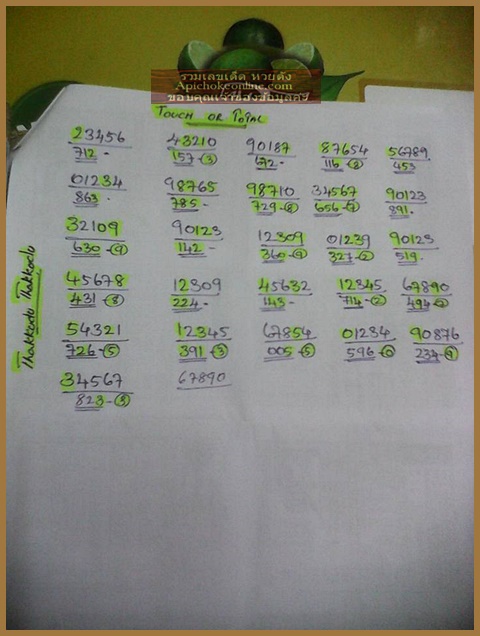 รวมเลขเด็ด หวยดัง
Apichokeonline.com
ขอบคุณเจ้าของข้อมูลครับ
TOUCH OR TOTAL
23456 43210 90187 87654 56789
712- 157-3 672- 116-8 453
01234 98765 98710 34567 90123
863- 785- 729-8 656-7 891-
32109 90123 12309 01239 90123
630-9 142- 360-9 327-2 519-
45678 12309 45632 12345 67890
431-8 224- 143- 714-2
54321 12345 67854 01234 90876
726-5 391-3 005-5 596-0 234-9
34567 67890
823-3
Thakkadu Thakkadu